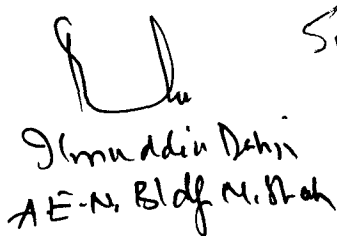 Ilmuddin Dahri
AE-N. Bldg M. Shah